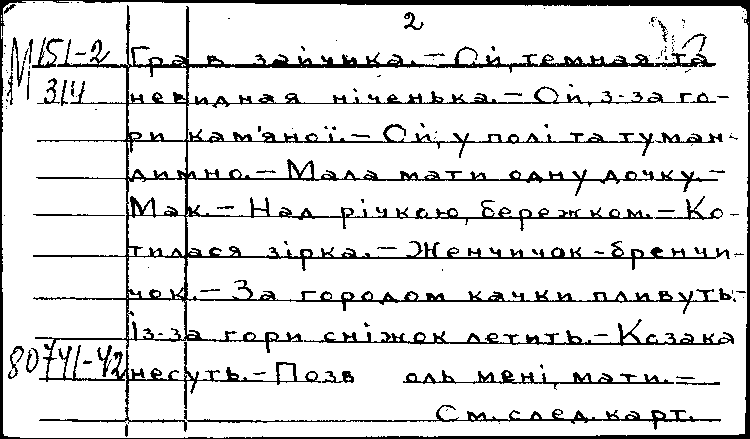 2
М 151-2 Гра в зайчика.— Ой, темная та
314 невидная ніченька.— Ой, з-за го-
ри кам'яної.— Ой, у полі та туман-
димно.— Мала мати одну дочку.—
Мак.— Над річкою, бережком.— Ко-
тилася зірка.— Женчичок-бренчи-
чок.— За городом качки пливуть.—
Із-за гори сніжок летить.— Козака
80741-42 несуть.— Позв оль мені, мати.—
См. след. карт.